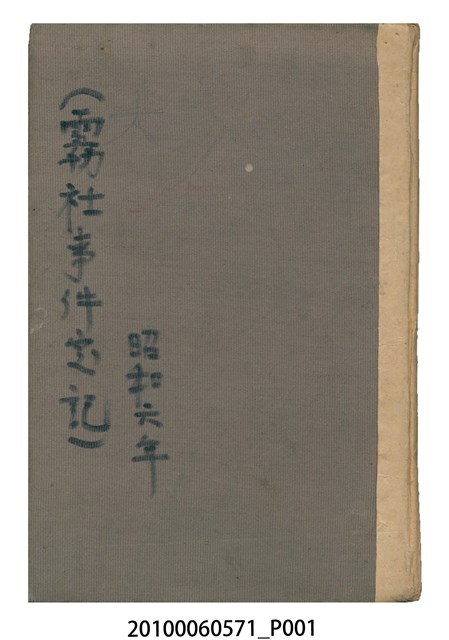 昭和六年
（霧社事件記）
20100060571_P001